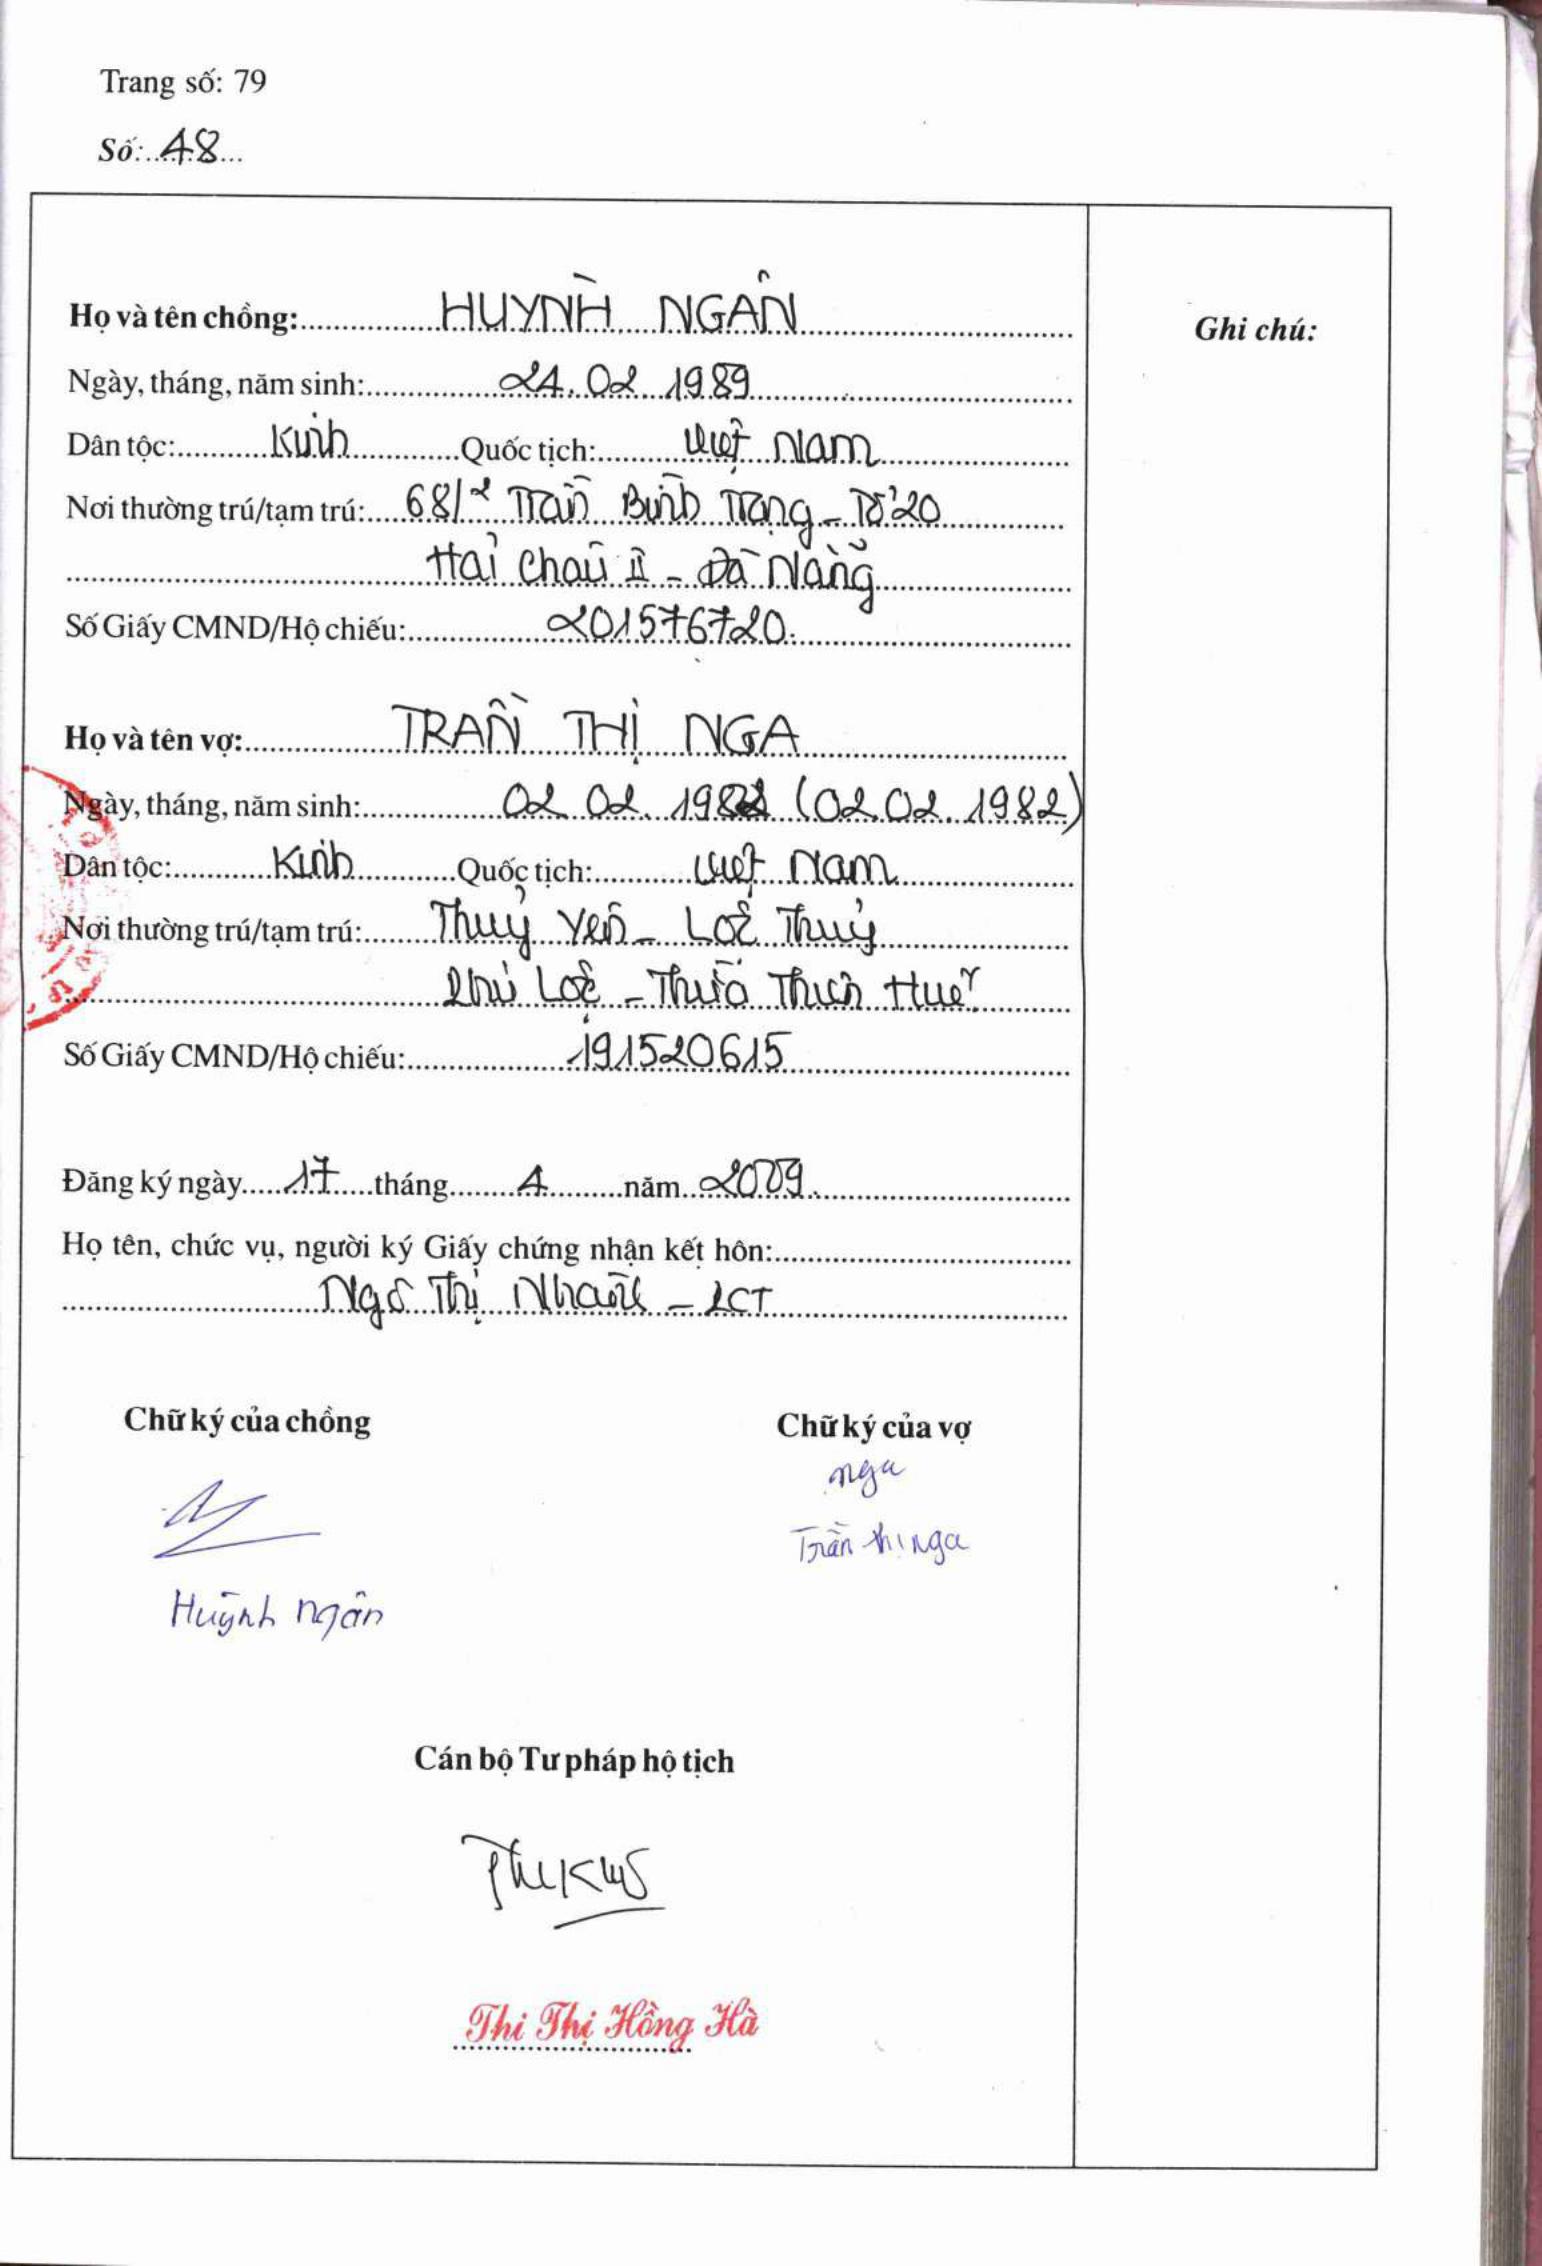 Trang số: 79
Số: 48
Họ và tên chồng: HUỲNH NGÂN
Ghi chú:
Ngày, tháng, năm sinh: 24.02.1989
Dân tộc: Kinh Quốc tịch: Việt Nam
Nơi thường trú/tạm trú: 68/2 Trần Bình Trọng - Tổ 20
Hải Châu II - Đà Nẵng
Số Giấy CMND/Hộ chiếu: 201576720.
Họ và tên vợ: TRẦN THỊ NGA
Ngày, tháng, năm sinh: 02.02.1982 (02.02.1982)
Dân tộc: Kinh Quốc tịch: Việt Nam
Nơi thường trú/tạm trú: Thuỷ Yên - Lộc Thuỷ
Phú Lộc - Thừa Thiên Huế
Số Giấy CMND/Hộ chiếu: 191520615
Đăng ký ngày 17 tháng 4 năm 2009.
Họ tên, chức vụ, người ký Giấy chứng nhận kết hôn:
Ngô Thị Nhanh - PCT
Chữ ký của chồng Chữ ký của vợ
Nga
Trần Thị Nga
Huỳnh Ngân
Cán bộ Tư pháp hộ tịch
Thi Thị Hồng Hà